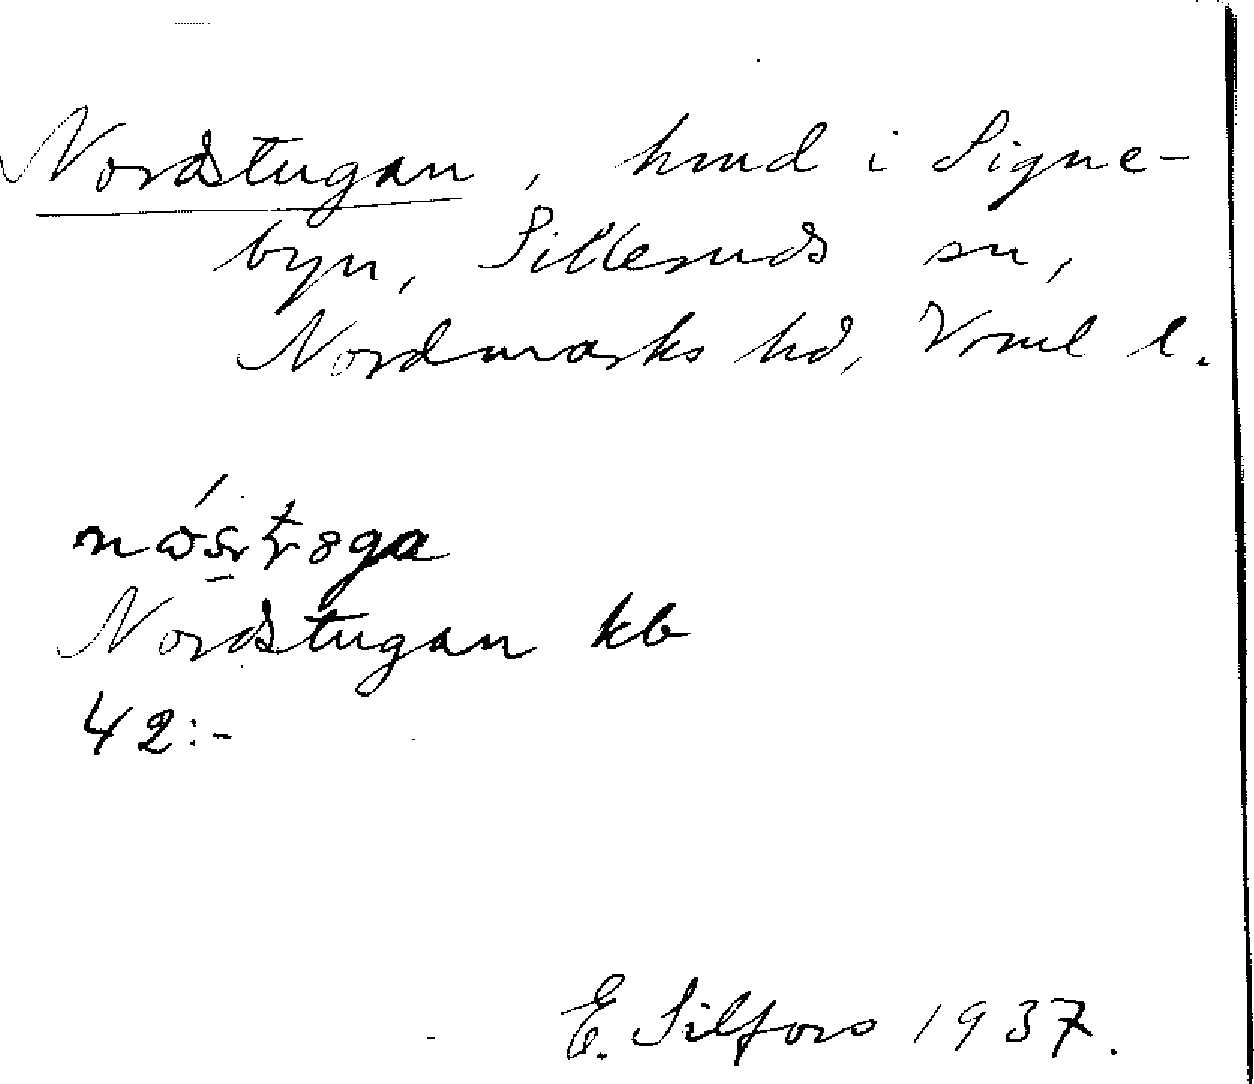 Nordstugan, hmd i Signe-
byn, Silleruds sn,
Nordmarks hd, Vrml l.
Nordstugan kb
42:-
E. Silfors 1937.